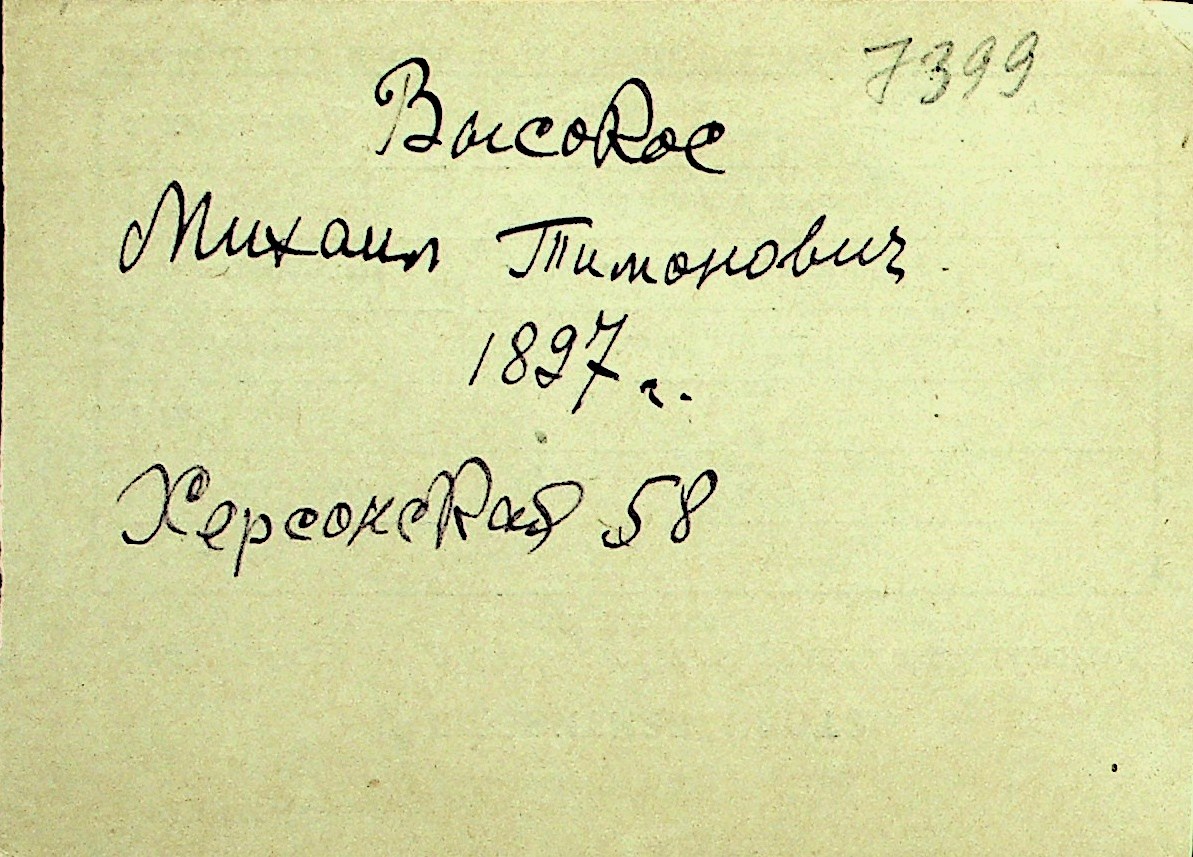 7399
Высокос
Михаил Тимонович
1897 г.
Херсонская 58